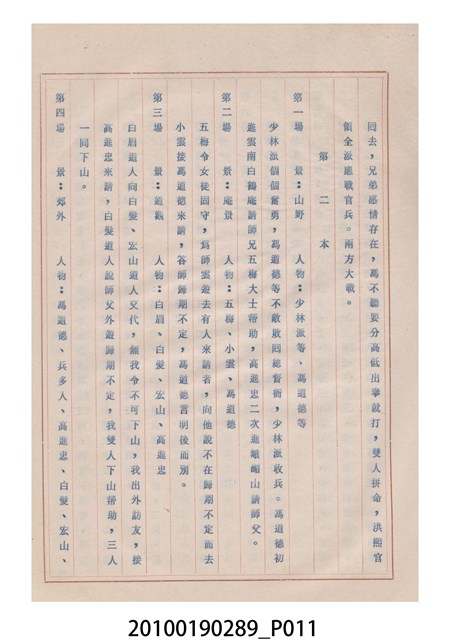 回去，兄弟感情存在，馮不聽要分高低出拳就打，雙人拼命，洪熙官
領全派應戰官兵。兩方大戰。
第二本
第一場 景：山野 人物：少林派等、馮道德等
少林派個個奮勇，馮道德等不敵敗回總督衙，少林派收兵。馮道德初
進雲南白鶴庵請師兄五梅大士帮助，高進忠二次進峨嵋山請師父。
第二場 景：庵景 人物：五梅、小雲、馮道德
五梅令女徒固守，為師雲遊去有人來請著，向他說不在歸期不定而去
小雲接馮道德來請，答師歸期不定，馮道德言明後而別。
第三場 景：道觀 人物：白眉、白髮、宏山、高進忠
白眉道人向白髮、宏山道人交代，無我令不可下山，我出外訪友，接
高進忠來請，白髮道人說師父外遊歸期不定，我雙人下山帮助，三人
一同下山。
第四場 景：郊外 人物：馮道德、兵多人、高進忠、白髮、宏山、
20100190289_P011